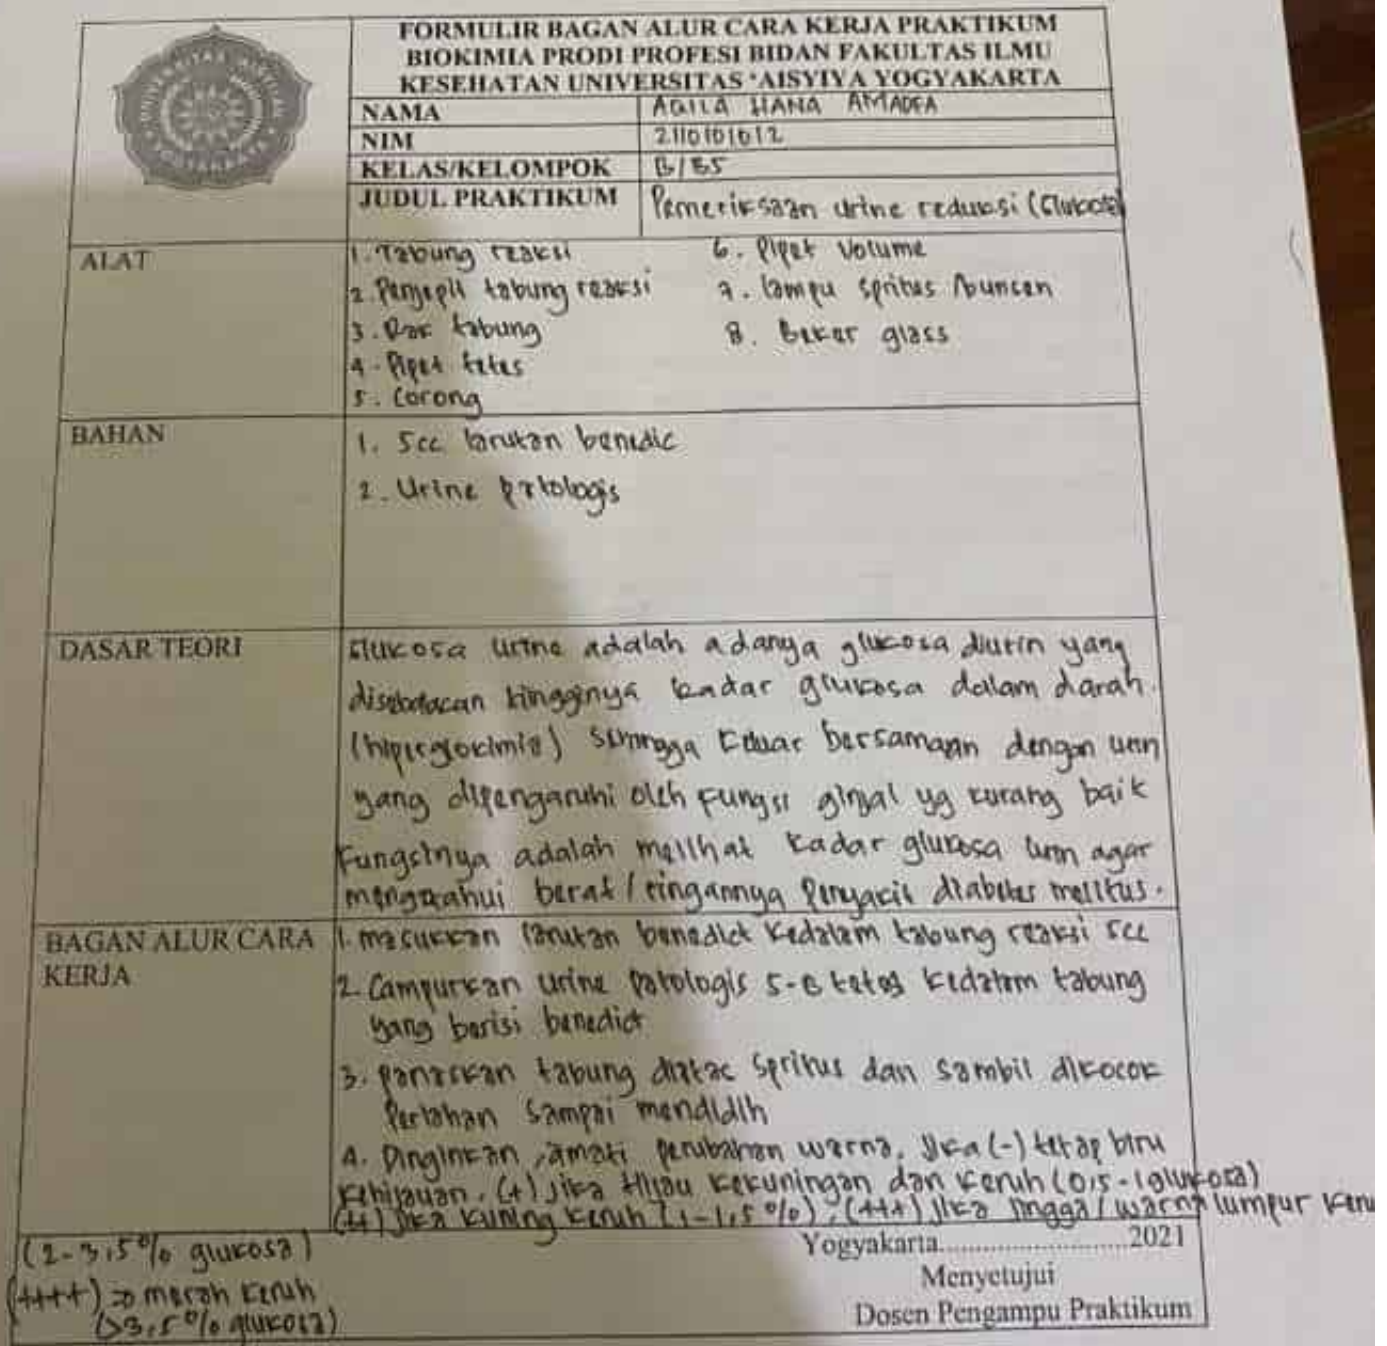 FORMULIR BAGAN ALUR CARA KERJA PRAKTIKUM
BIOKIMIA PRODI PROFESI BIDAN FAKULTAS ILMU
KESEHATAN UNIVERSITAS 'AISYIYA YOGYAKARTA
NAMA AQILA HANA AMADEA
NIM 2110101012
KELAS/KELOMPOK B/B5
JUDUL PRAKTIKUM Pemeriksaan urine reduksi (Glukosa)
ALAT
1. Tabung reaksi
2. Penjepit tabung reaksi
3. Rak tabung
4. Pipet tetes
5. Corong
6. Pipet volume
7. lampu spritus /buncen
8. Beker glass
BAHAN
1. 5cc larutan benedic
2. Urine patologis
DASAR TEORI
Glukosa urine adalah adanya glukosa diurin yang
disebabkan tingginya kadar glukosa dalam darah.
(hiperglokimia) sehingga keluar bersamaan dengan urin
yang dipengaruhi oleh fungsi ginjal yg kurang baik
Fungsinya adalah melihat kadar glukosa urin agar
mengetahui berat / ringannya penyakit diabetes melitus.
BAGAN ALUR CARA
KERJA
1. masukkan larutan benedict kedalam tabung reaksi 5cc
2. Campurkan urine patologis 5-8 tetes kedalam tabung
yang berisi benedict
3. panaskan tabung diatas spritus dan sambil dikocok
perlahan sampai mendidih
4. Dinginkan, amati perubahan warna. Jika (-) tetap biru
kehijauan. (+) jika hijau kekuningan dan keruh (0,5-1 glukosa)
(++) Jika kuning keruh (1-1,5 %), (+++) Jika jingga / warna lumpur keru
(2-3,5% glukosa)
(++++) => merah keruh
(>3,5% glukosa)
Yogyakarta..........................2021
Menyetujui
Dosen Pengampu Praktikum